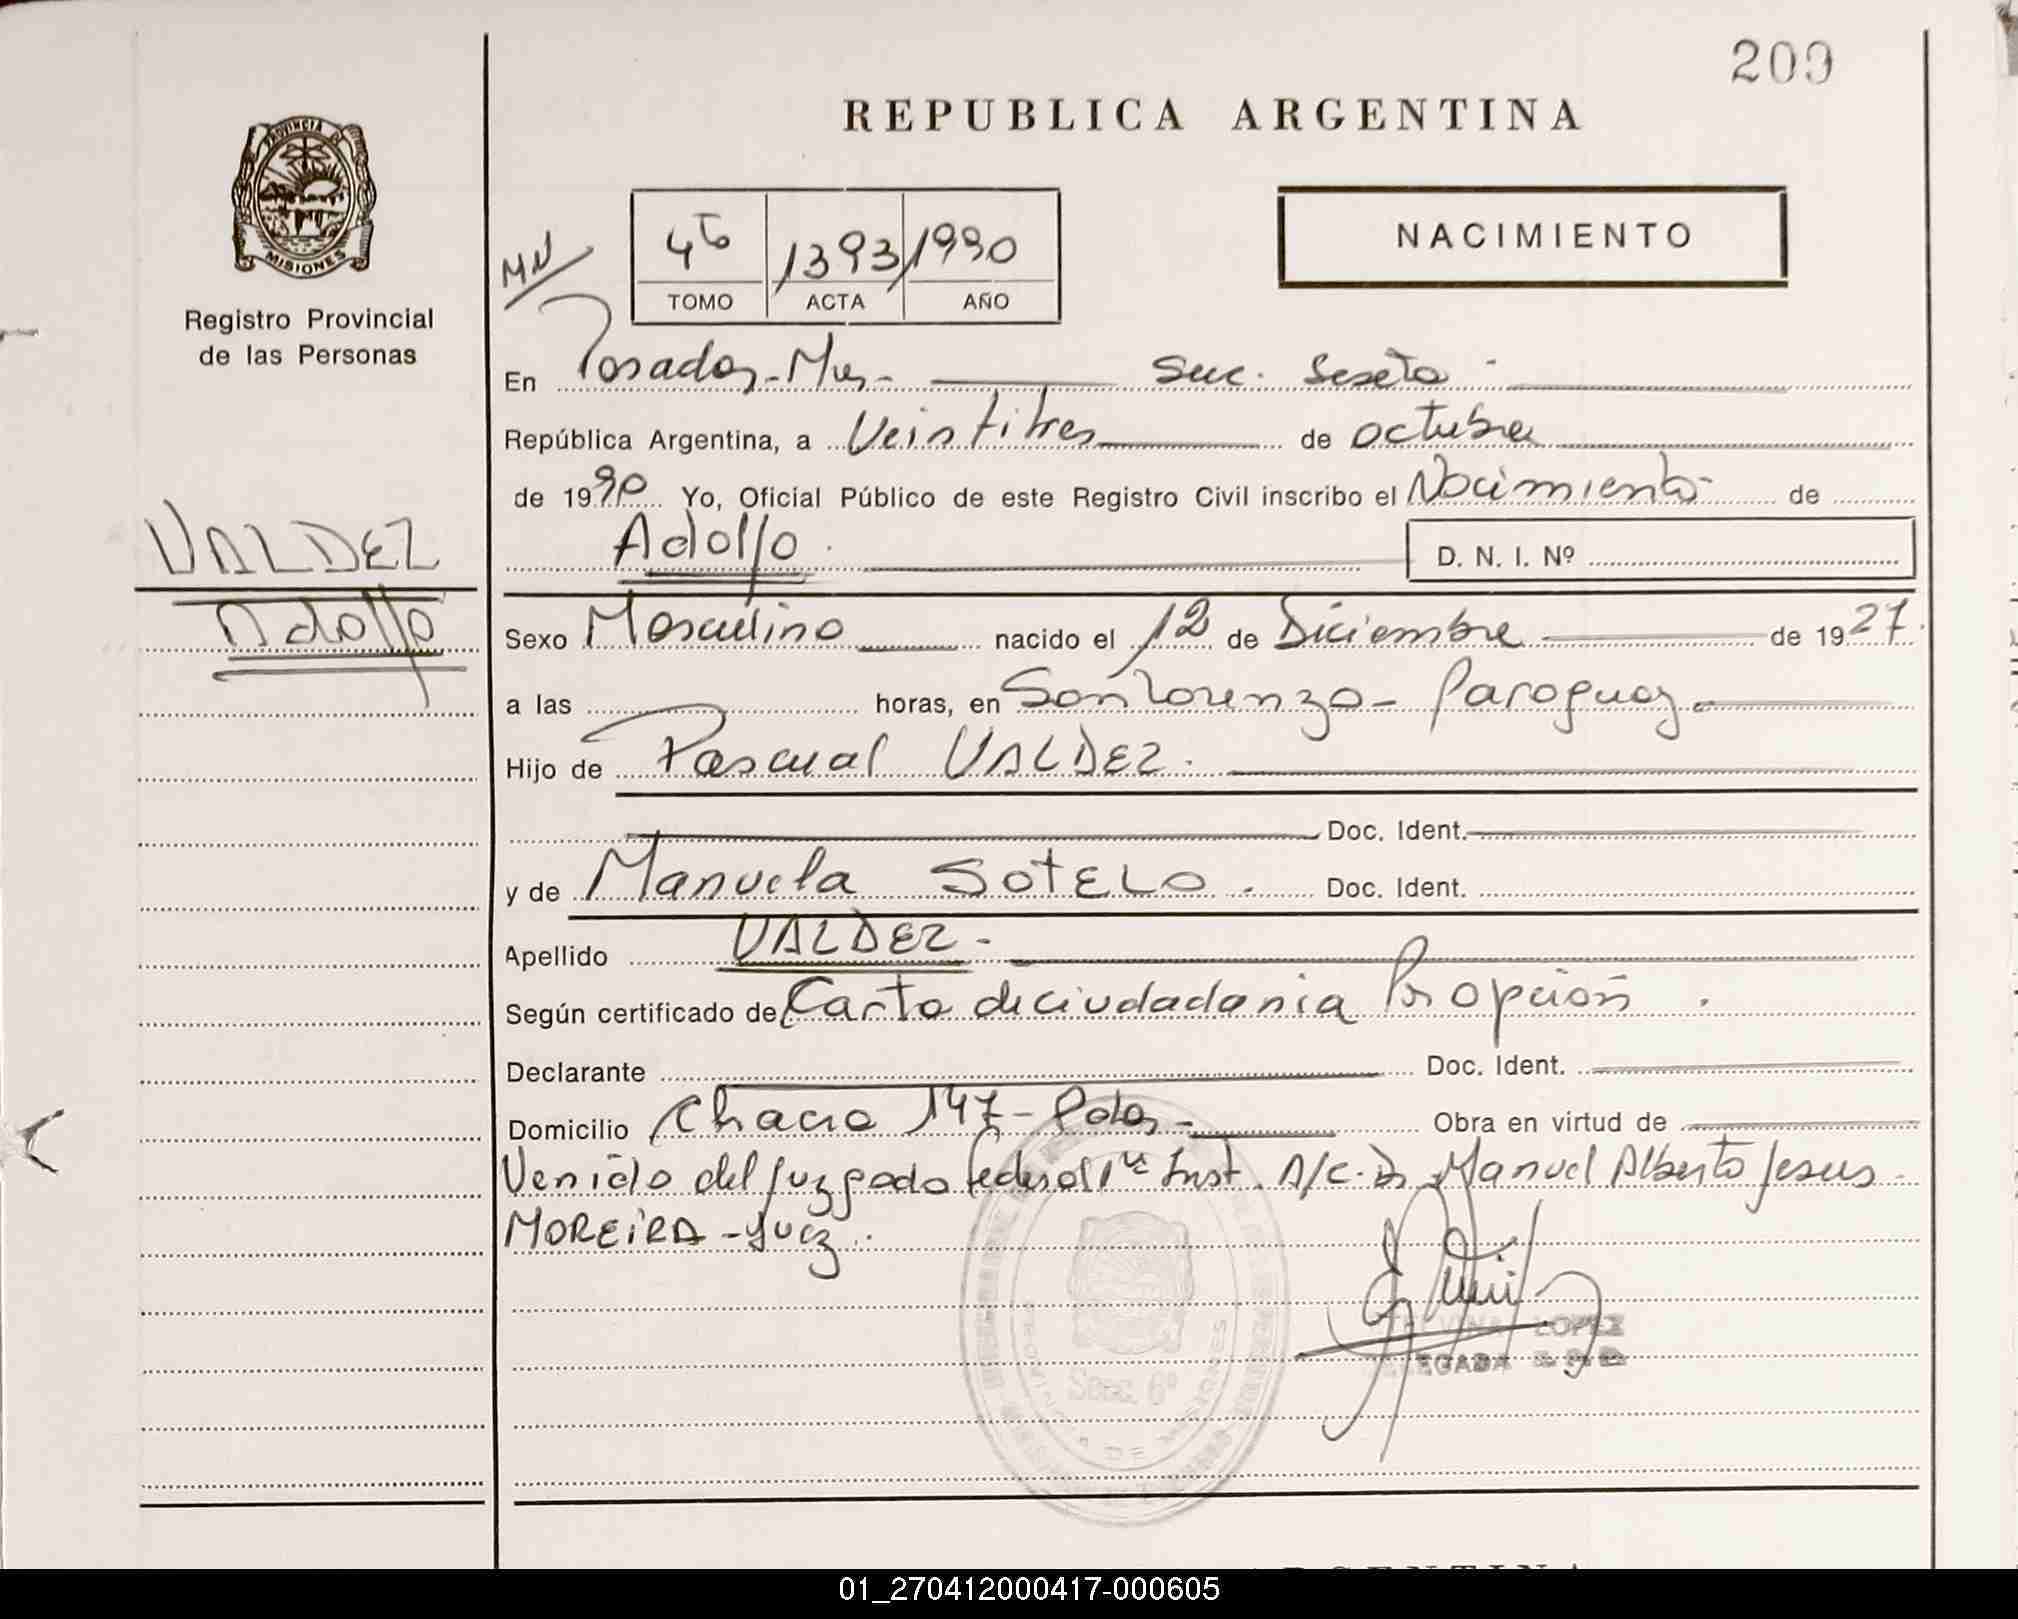 209
REPUBLICA ARGENTINA
PROVINCIA D
MISIONES
Registro Provincial
de las Personas
MN
4to 1393 1990
TOMO ACTA AÑO
NACIMIENTO
En Posadas-Mnes- Secc. Sexta -
República Argentina, a Veintitres de octubre
de 1990 Yo, Oficial Público de este Registro Civil inscribo el Nacimiento de
Adolfo. D. N. I. Nº
VALDEZ
Adolfo
Sexo Masculino nacido el 12 de Diciembre de 1927.
a las horas, en San Lorenzo - Paraguay.
Hijo de Pascual VALDEZ.
Doc. Ident.
y de Manuela SOTELO. Doc. Ident.
Apellido VALDEZ.-
Según certificado de Carta de ciudadania Por opción.
Declarante Doc. Ident.
Domicilio Chacra 147 - Pdas - Obra en virtud de
Venido del Juzgado federal 1ra Inst. A/C. Dr Manuel Alberto Jesus
MOREIRA - Juez.
Secc. 6º
LOPEZ
DELEGADA
ARGENTINA
01_270412000417-000605